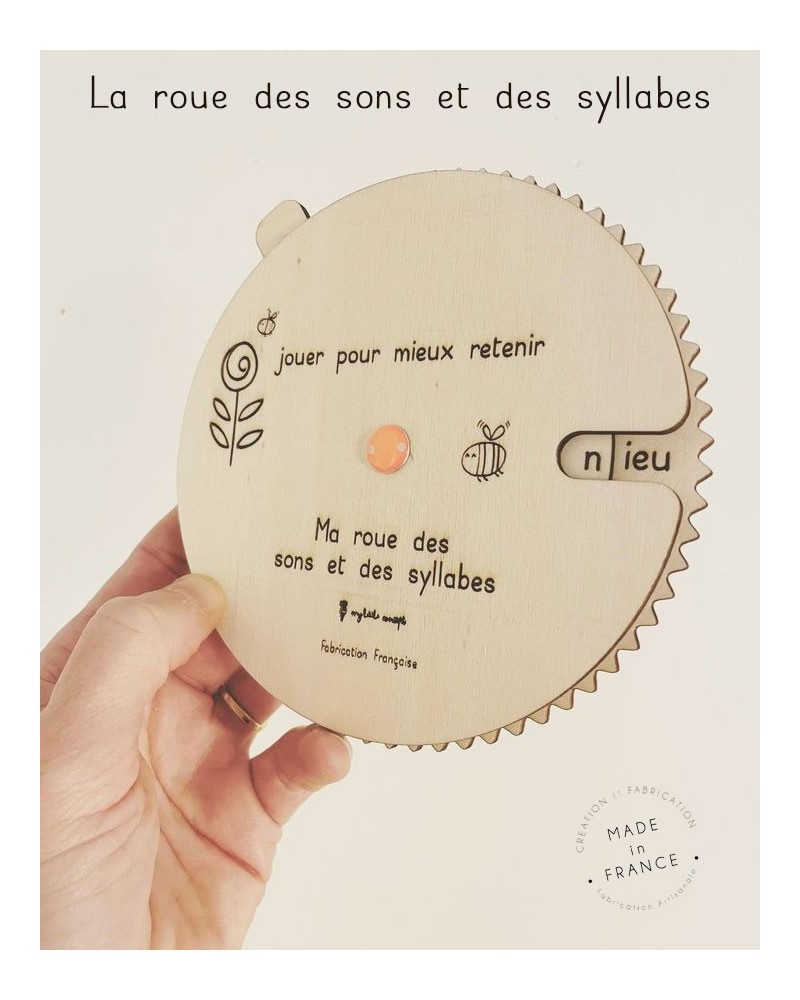 La roue des sons et des syllabes
jouer pour mieux retenir
n ieu
Ma roue des
sons et des syllabes
Fabrication Française
CREATION ET FABRICATION
MADE
in
FRANCE
Fabrication Artisanale